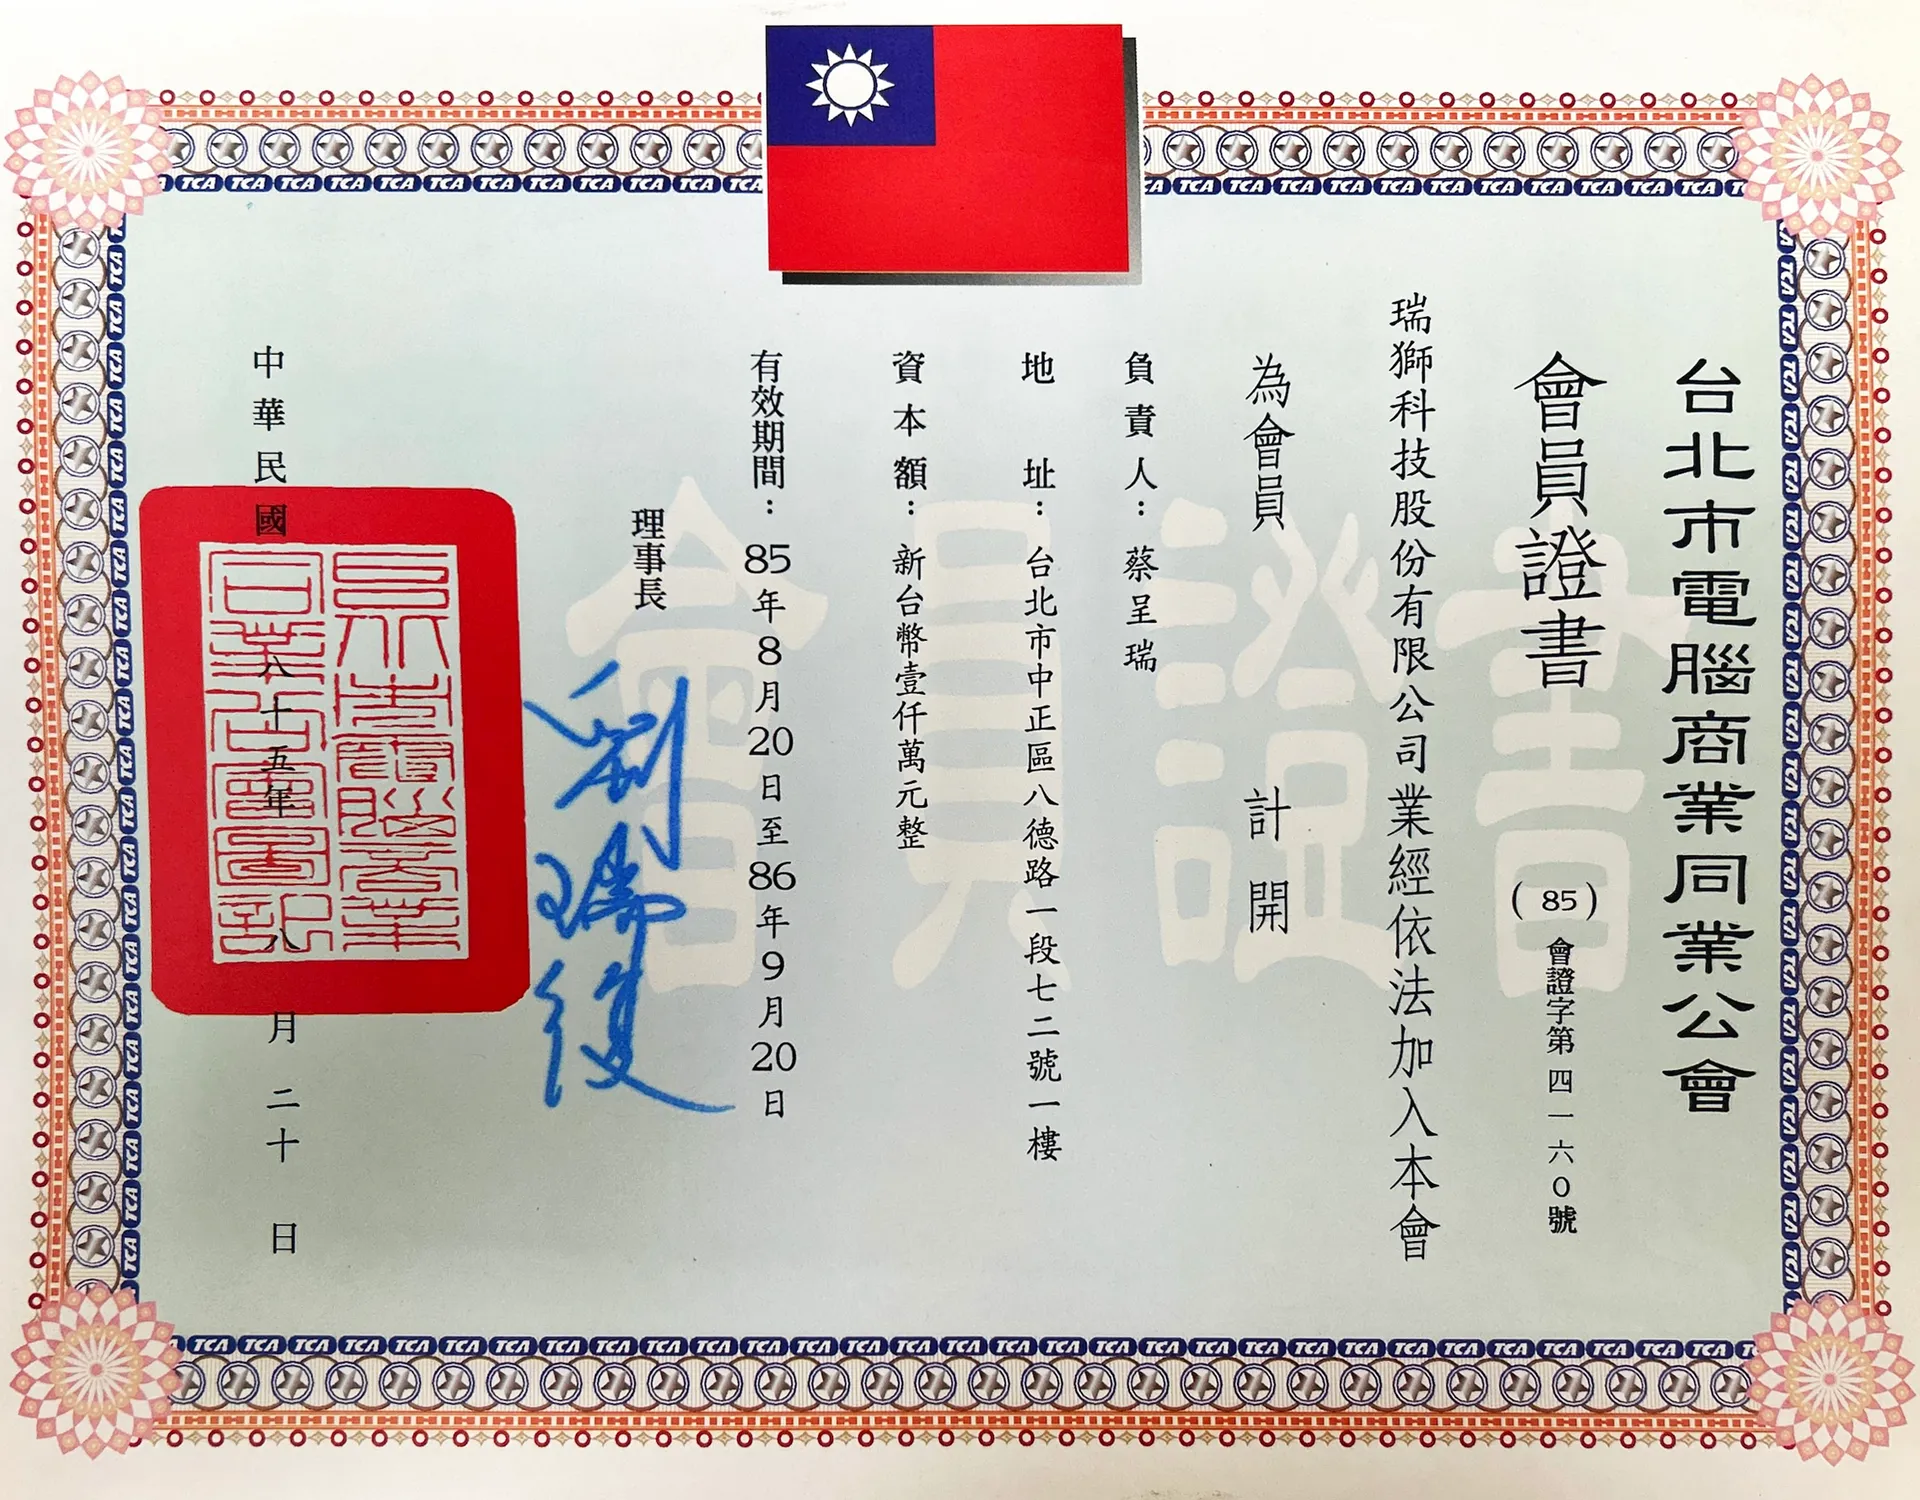 台北市電腦商業同業公會
會員證書
(85)會證字第四一六０號
瑞獅科技股份有限公司業經依法加入本會
為會員 計開
負責人：蔡呈瑞
地址：台北市中正區八德路一段七二號一樓
資本額：新台幣壹仟萬元整
有效期間：85年8月20日至86年9月20日
理事長 劉瑞復
中華民國八十五年八月二十日
會員證書
TCA